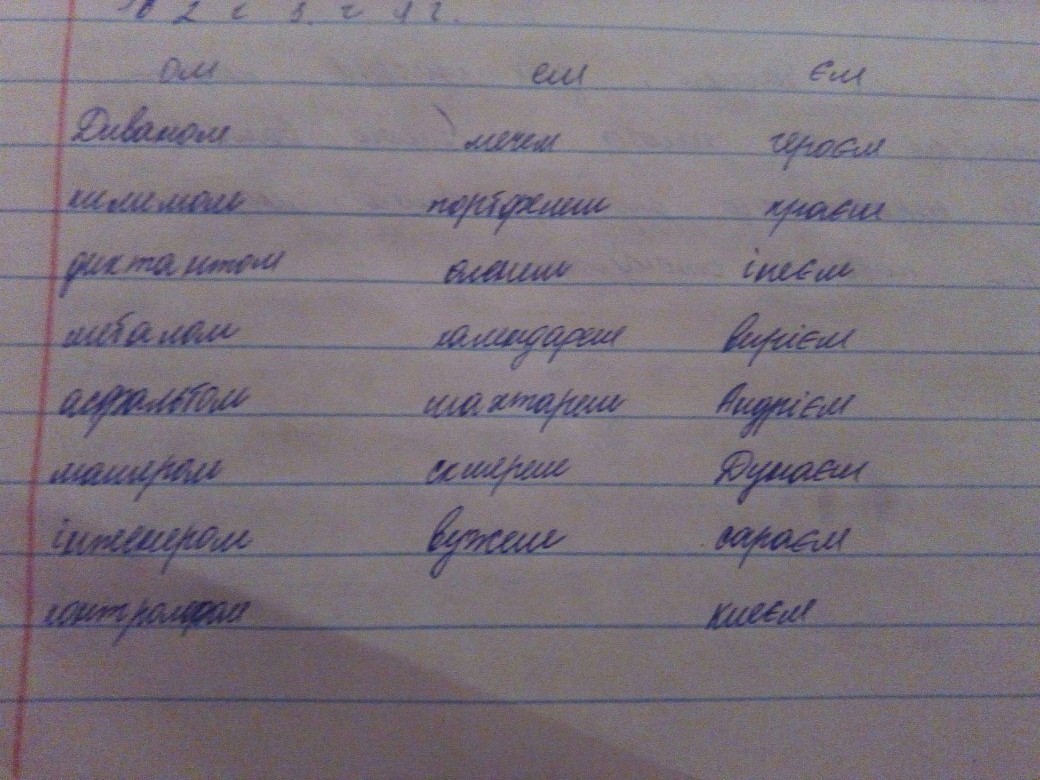 ом ем єм
Диваном мечем героєм
килимом портфелем краєм
диктантом оленем інеєм
металом календарем вирієм
асфальтом шахтарем Андрієм
маляром склярем Дунаєм
інженером вужем сараєм
контролером клеєм